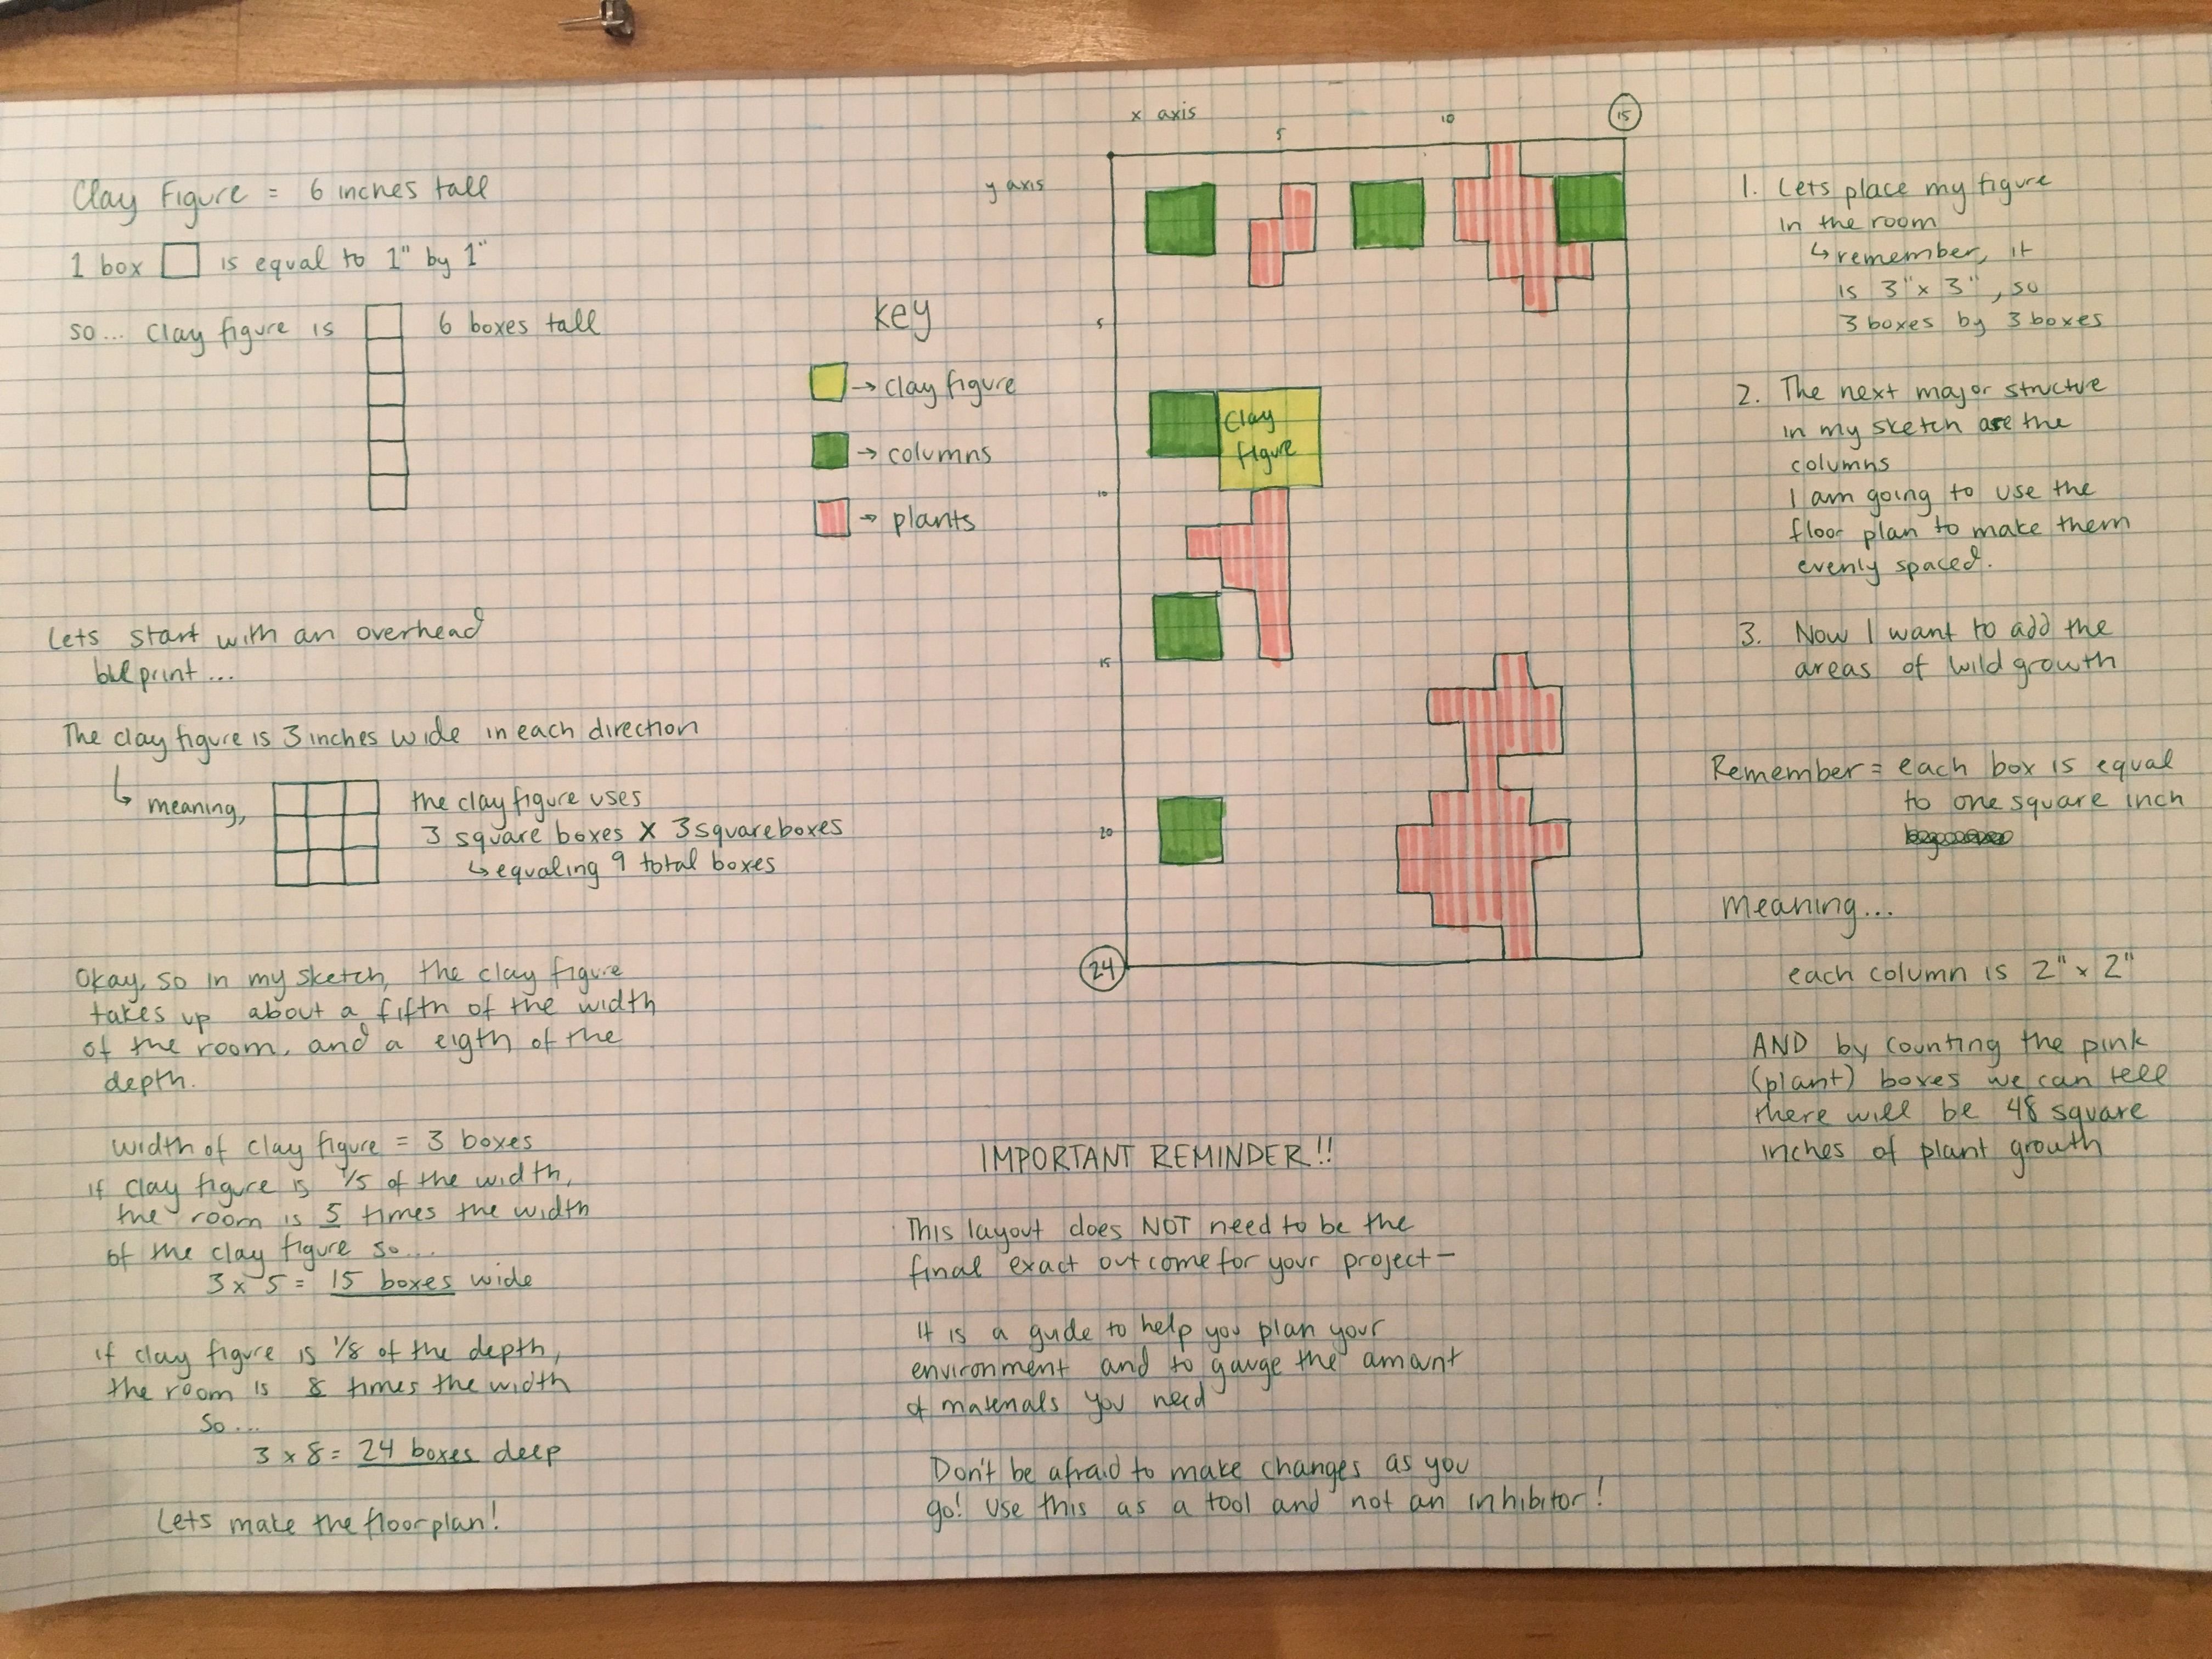 Clay Figure = 6 inches tall
1 box is equal to 1" by 1"
so... clay figure is 6 boxes tall
Lets start with an overhead
blueprint...
The clay figure is 3 inches wide in each direction
↳ meaning,
the clay figure uses
3 square boxes x 3 square boxes
↳ equaling 9 total boxes
Okay, so in my sketch, the clay figure
takes up about a fifth of the width
of the room, and a eigth of the
depth.
width of clay figure = 3 boxes
if clay figure is 1/5 of the width,
the room is 5 times the width
of the clay figure so...
3 x 5 = 15 boxes wide
if clay figure is 1/8 of the depth,
the room is 8 times the width
so...
3 x 8 = 24 boxes deep
Lets make the floorplan!
key
→ clay figure
→ columns
→ plants
y axis
x axis
5
10
15
5
10
15
20
24
clay
figure
IMPORTANT REMINDER!!
This layout does NOT need to be the
final exact outcome for your project -
It is a guide to help you plan your
environment and to gauge the amount
of materials you need
Don't be afraid to make changes as you
go! Use this as a tool and not an inhibitor!
1. Lets place my figure
in the room
↳ remember, it
is 3" x 3", so
3 boxes by 3 boxes
2. The next major structure
in my sketch are the
columns
I am going to use the
floor plan to make them
evenly spaced.
3. Now I want to add the
areas of wild growth
Remember = each box is equal
to one square inch
Meaning...
each column is 2" x 2"
AND by counting the pink
(plant) boxes we can tell
there will be 48 square
inches of plant growth